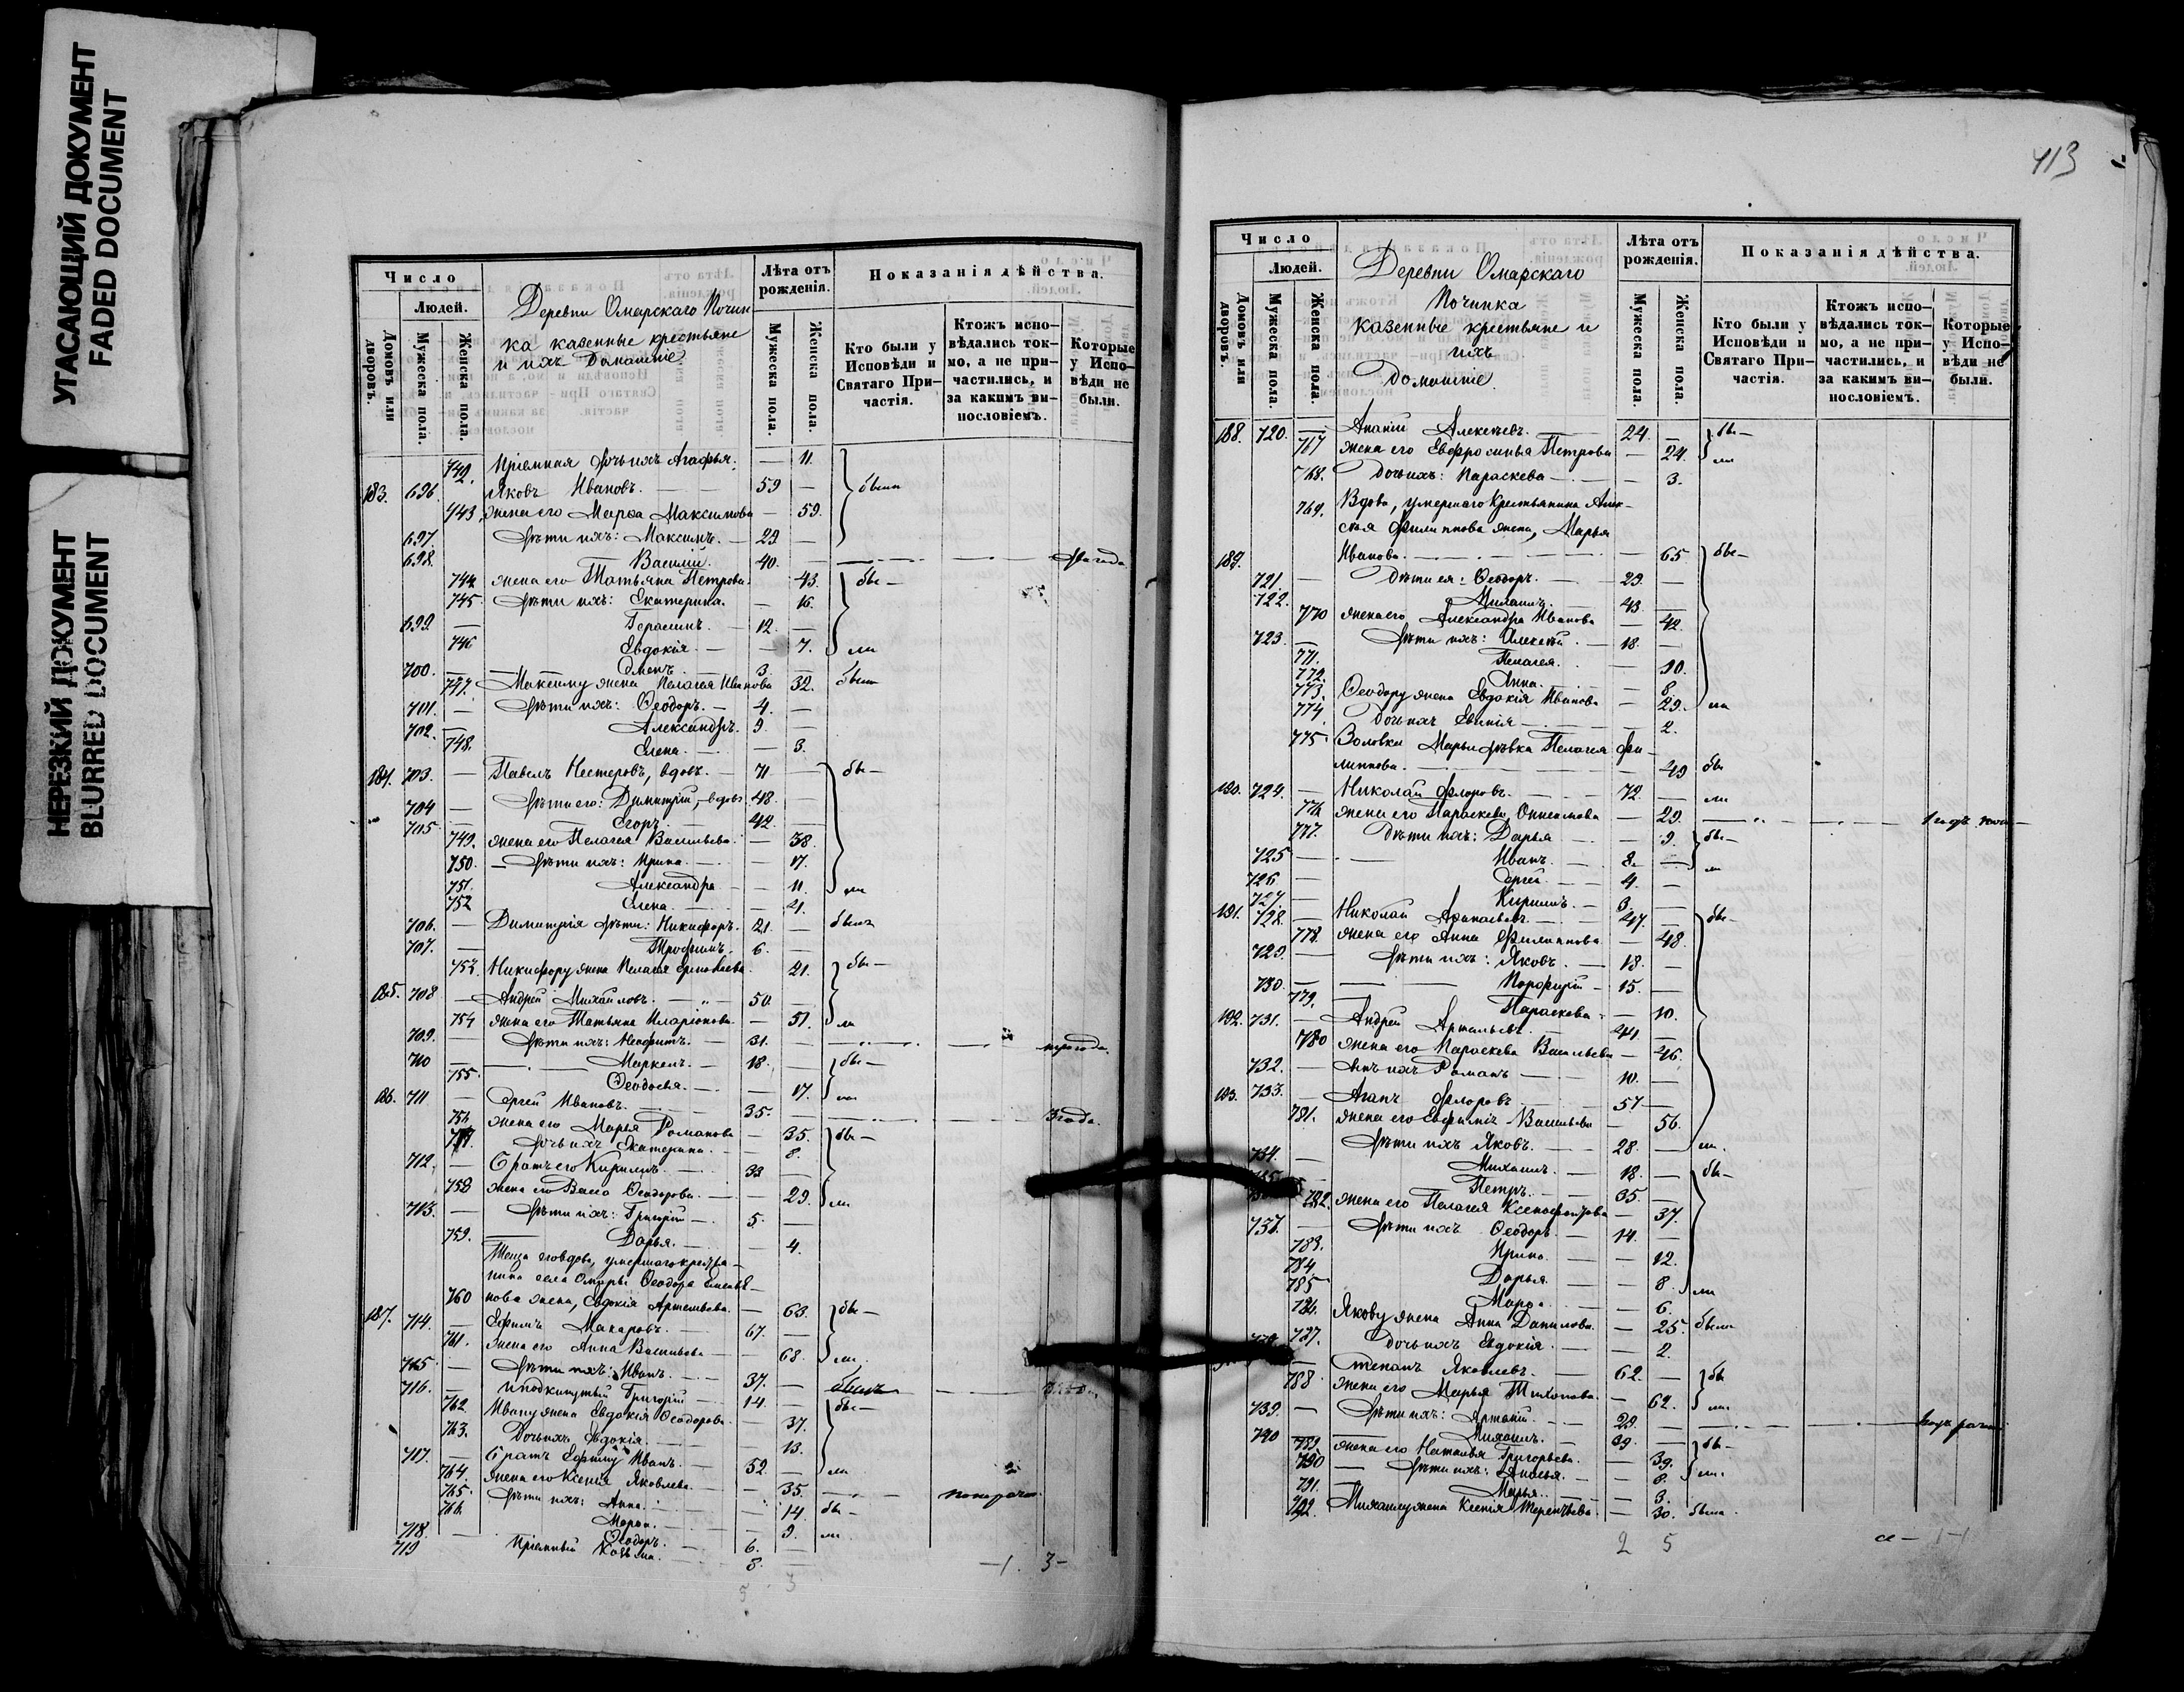 УГАСАЮЩИЙ ДОКУМЕНТ
FADED DOCUMENT
НЕРЕЗКИЙ ДОКУМЕНТ
BLURRED DOCUMENT
Число
Людей.
Домовъ или дворовъ.
Мужеска пола.
Женска пола.
Деревни Омарскаго Почин
ка казенные крестьяне
и ихъ Домашніе
Лѣта отъ рожденія.
Мужеска пола.
Женска пола.
Показанія дѣйства.
Кто были у Исповѣди и Святаго Причастія.
Ктожъ исповѣдались токмо, а не причастились, и за какимъ винословіемъ.
Которые у Исповѣди не были.
742. Пріемная дочь ихъ Агафья. — 11.
183. 696. Яковъ Ивановъ. 59 — были
743. жена его Марѳа Максимова — 59.
697. Дѣти ихъ: Максимъ. — 29 —
698. Василій. 40. —
744 жена его Татьяна Петрова. 43. бы —
745. Дѣти ихъ: Екатерина. — 16.
699. — Герасимъ. — 12. —
746 Евдокія. — 7. ли
700. — Семенъ. 3. —
747. Максиму жена Пелагея Иванова 32. были
701. — Дѣти ихъ: Ѳеодоръ. — 4. —
702. — Александръ. 9. —
748. Елена. — 3.
184. 703. — Павелъ Нестеровъ, вдовъ. — 71 — бы —
704 — Дѣти его: Димитрій, — вдовъ 48.
705. — Егоръ. 42. —
749. жена его Пелагея Васильева. — 38.
750. — Дѣти ихъ: Ирина. — 17.
751. Александра — 11. ли
752 Елена. — 4.
706. — Димитрія дѣти: Никифоръ. 21. — былъ
707. — Трофимъ. 6. —
753. Никифору жена Пелагея 21. бы —
185. 708 — Андрей Михайловъ. 50 —
754 жена его Татьяна Иларіонова. — 51. ли
709. — Дѣти ихъ: Неофитъ. — 31. —
710 — Маркелъ. — 18. — бы —
755. Ѳеодосья. — 17. ли
186. 711 — Сергей Ивановъ. 35. — 3 года.
756. жена его Марья Романова — 35. бы —
757. Дочь ихъ Екатерина. — 8.
712. — Братъ его Кирилъ. 33 —
758 жена его Васса Ѳеодорова. — 29. ли
713. — Дѣти ихъ: Григорій — 5. —
759. Дарья. — 4.
Теща его вдова, умершаго крестья —
нина села Омары Ѳеодора
760 нова жена, Евдокія Артемьева. — 63. бы —
187. 714. — Ефимъ Макаровъ. 67. —
761. жена его Анна Васильева — 68. ли.
715. — Дѣти ихъ: Иванъ. 37. —
716. — Григорій — 14. —
762. Ивану жена Евдокія Ѳеодорова. — 37. бы —
763. Дочь ихъ Евдокія. 13.
717. — Братъ Ефиму Иванъ. — 52. — ли
764. жена его Ксенія Яковлева. — 35.
765. Дѣти ихъ: Анна. — 14. бы —
766. Марѳа. — 9. ли
718. — Ѳеодоръ. — 6. —
719 Пріемный Козьма. 8. —
— 1. 3 —
5 3
413
Число
Людей.
Домовъ или дворовъ.
Мужеска пола.
Женска пола.
Деревни Омарскаго
Починка
казенные крестьяне и
ихъ
Домашніе.
Лѣта отъ рожденія.
Мужеска пола.
Женска пола.
Показанія дѣйства.
Кто были у Исповѣди и Святаго Причастія.
Ктожъ исповѣдались токмо, а не причастились, и за какимъ винословіемъ.
Которые у Исповѣди не были.
188. 720. — Ананій Алексѣевъ. 24. — бы —
767 жена его Евфросинья Петрова — 24. ли
768. Дочь ихъ: Параскева — 3.
769. Вдова, умершаго крестьянина
Филиппова жена, Марья
189. Иванова. — 65. бы —
721. — Дѣти ея: Ѳеодоръ. — 29. —
722. Михаилъ. — 43. —
770 жена его Александра Иванова — 42.
723. — Дѣти ихъ: Алексѣй. — 18. —
771. Пелагея. — 10.
772. Анна. — 8.
773. Ѳеодору жена Евдокія Иванова — 29. ли
774. Дочь ихъ — 2.
775. Золовка Марьи дѣвка Пелагея Фи —
липпова. — 49 бы
190. 724. — Николай Флоровъ. 72. — ли
776 жена его Параскева — 29.
777. Дѣти ихъ: Дарья — 9. бы —
725 — Иванъ. — 8. —
726 — Сергей — 4. — ли
727. — Кирилъ. — 3. —
191. 728. — Николай 47. — бы —
778. жена его Анна Филиппова — 48.
729. — Дѣти ихъ: Яковъ. — 18. —
730. — Порфирій — 15. —
779. Параскева — 10.
192. 731. — Андрей 44. —
780 жена его Параскева Васильева — 46.
732. — сынъ ихъ Романъ 10. —
193. 733. — Агапъ Флоровъ 57 —
781. жена его Евфимія Васильева — 56.
734. — Дѣти ихъ Яковъ. — 28. — ли.
Михаилъ. — 18. — бы —
Петръ. — 35. —
782. жена его Пелагея Ксенофонтова — 37.
737. — Дѣти ихъ Ѳеодоръ. — 14. —
783. Ирина. — 12.
784 Дарья. — 8. ли
785 Марѳа — 6.
786. Якову жена Анна Данилова. — 25. были
787. Дочь ихъ Евдокія. — 2.
Степанъ Яковлевъ. — 62. — бы
788 жена его Марья Тихонова. — 62. ли.
739. — Дѣти ихъ: 29. —
740 Михаилъ. — 39. —
789. жена его Наталья Григорьева. — 39. бы —
790 Дѣти ихъ: — 8. ли.
791. Марья. — 3.
792. Михаилу жена Ксенія Терентьева. — 30. была.
2 5